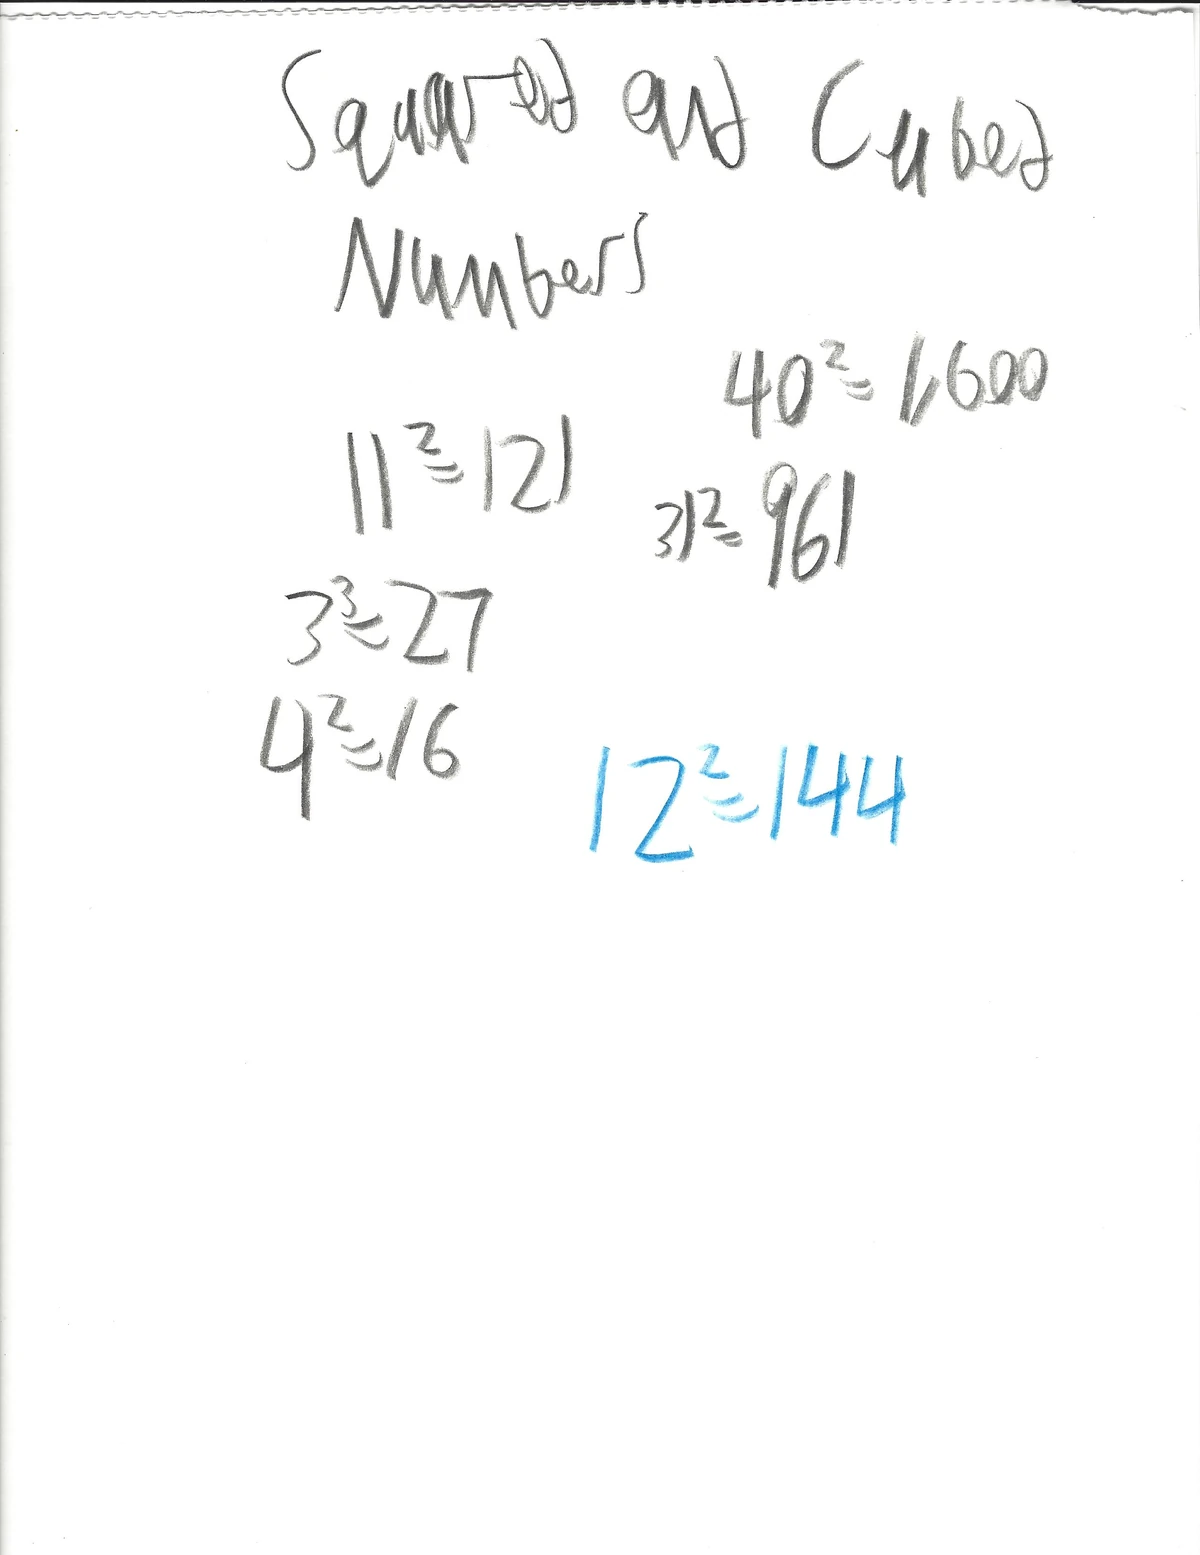 Squared and Cubed
Numbers
40²=1,600
11²=121
31²=961
3³=27
4²=16
12²=144